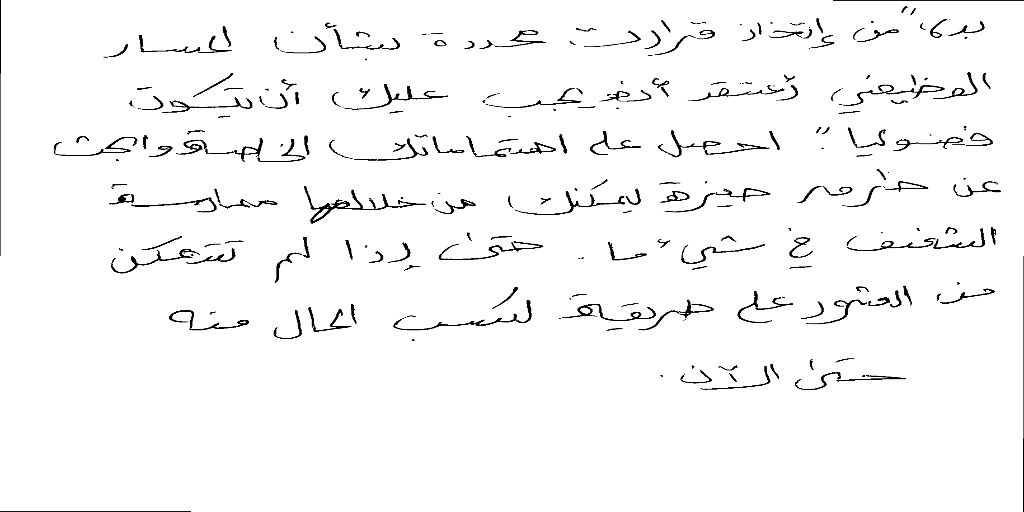 بدلاً من إتخاذ قرارات محددة بشأن المسار
الوظيفي أعتقد أنه يجب عليك أن تكون
فضولياً". احصل على اهتماماتك الخاصة وابحث
عن طرق مميزة يمكنك من خلالها ممارسة
الشغف في شيء ما. حتى إذا لم تتمكن
من العثور على طريقة لكسب المال منه
حتى الآن.